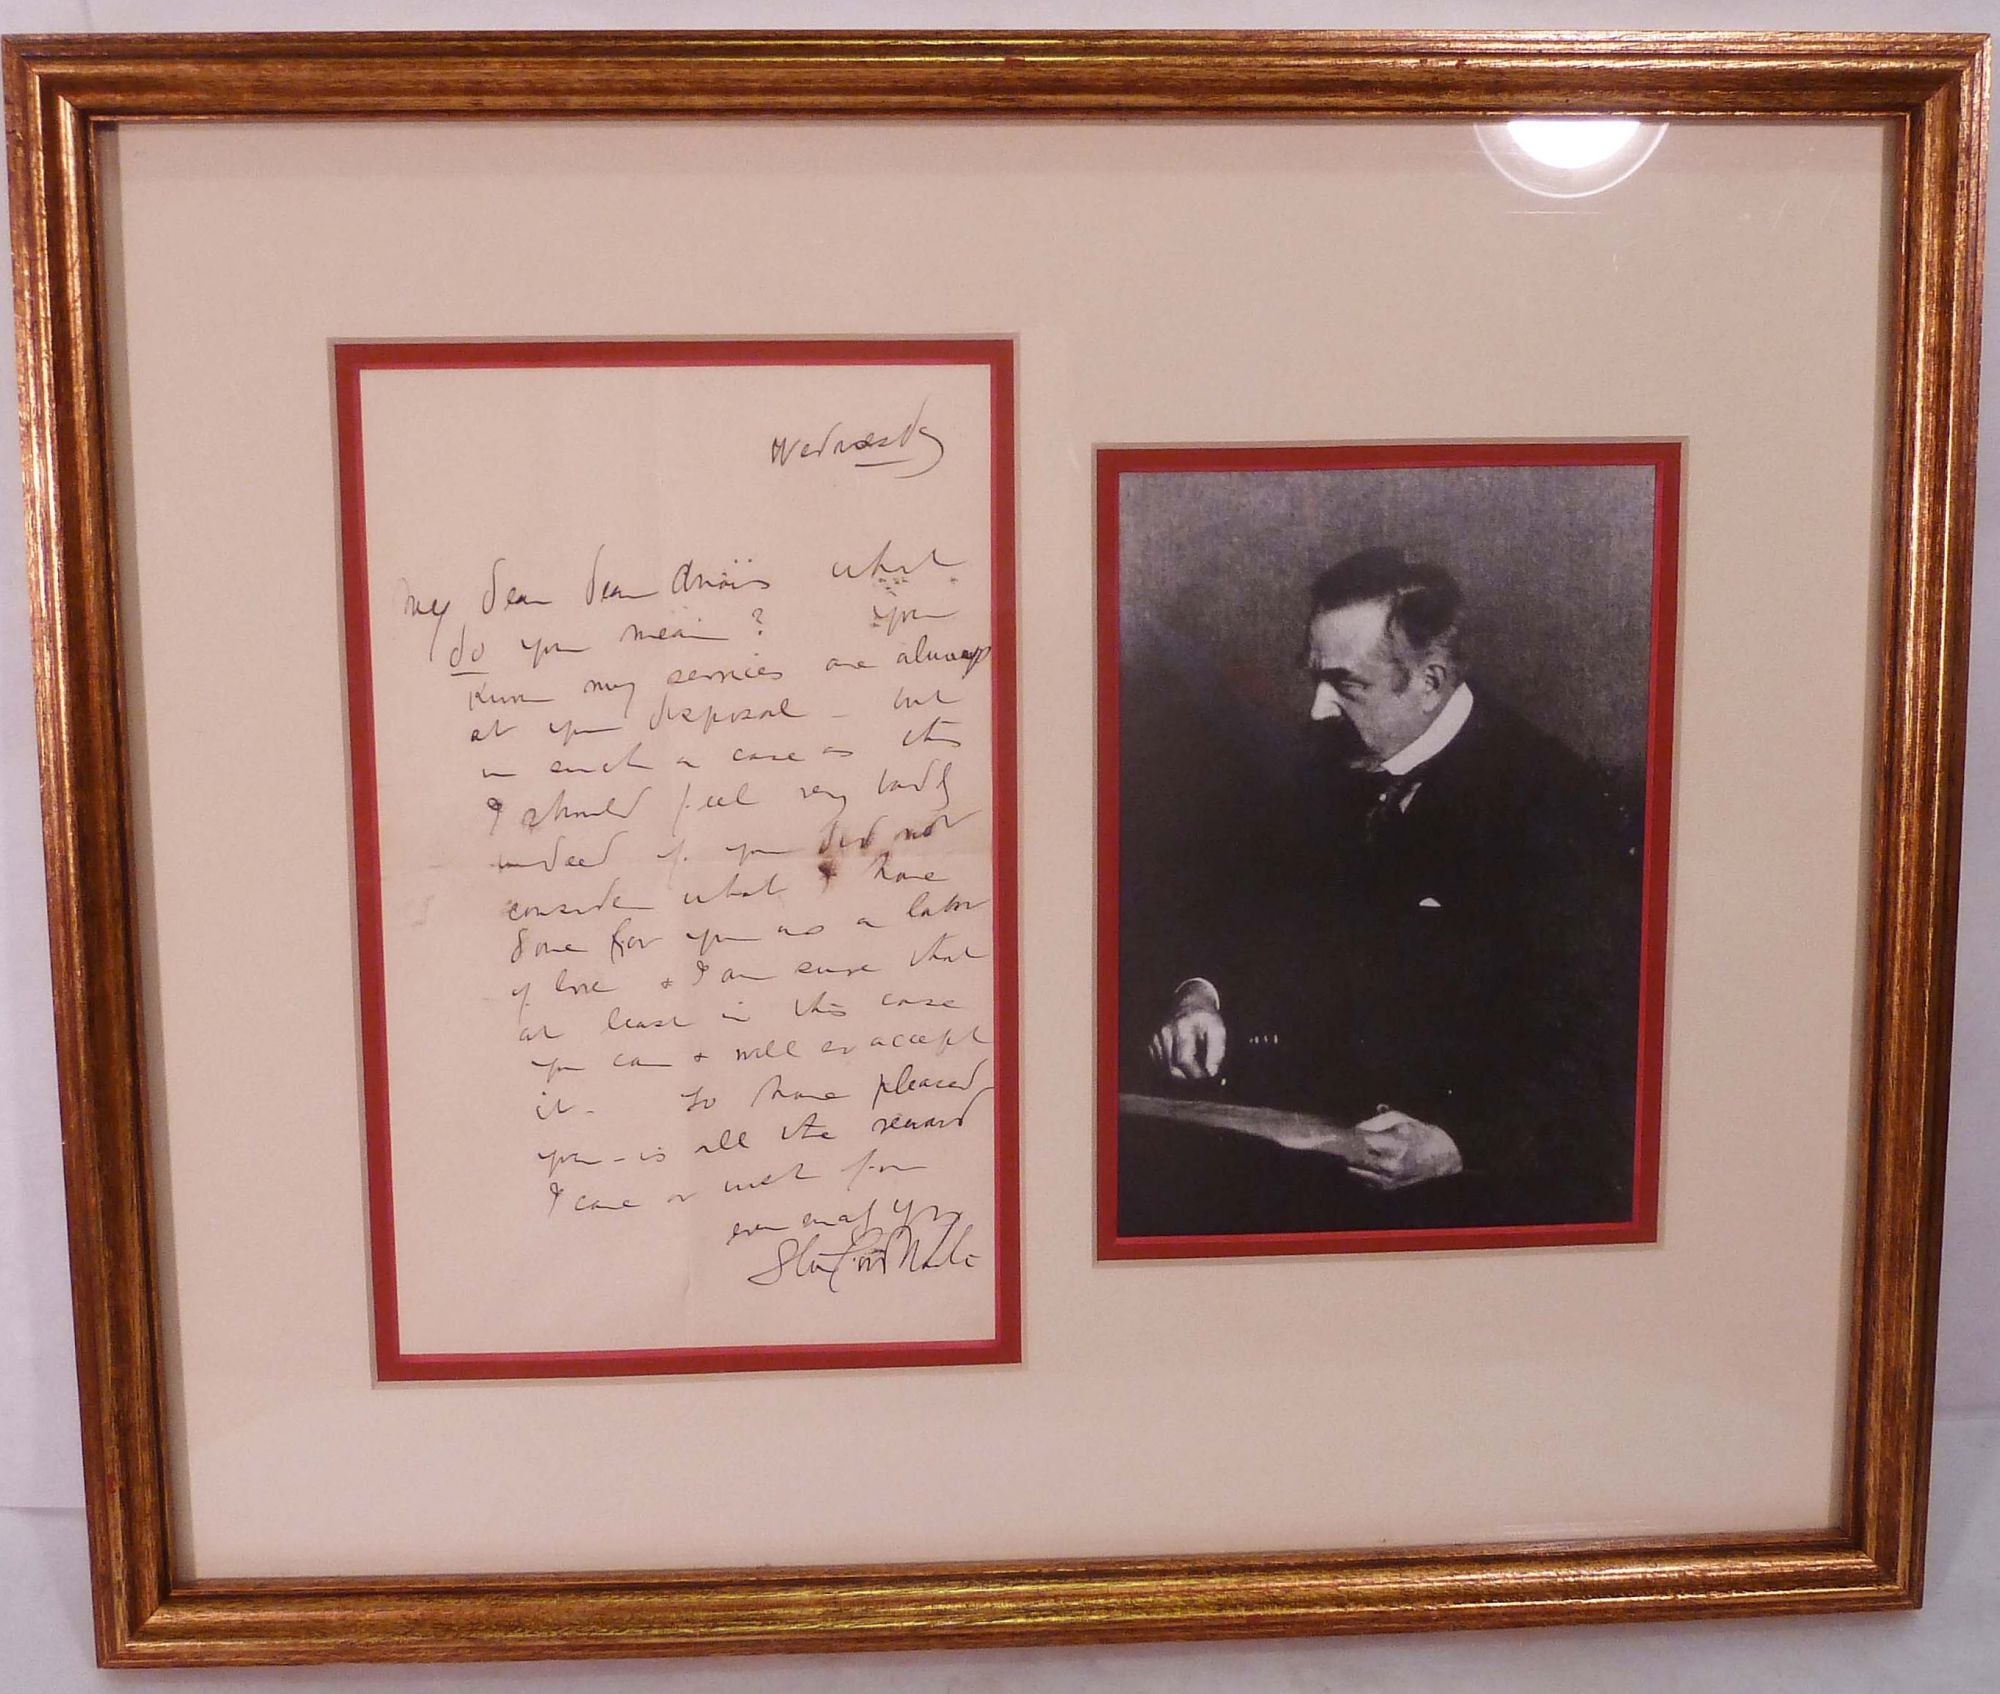 Wednesday
My dear dear Anaïs what
do you mean? you
know my services are always
at your disposal - but
in such a case as this
I should feel very badly
indeed if you did not
consider what I have
done for you as a labor
of love & I am sure that
at least in this case
you can & will so accept
it - To have pleased
you - is all the reward
I care or wish for
ever yrs
Stanford White